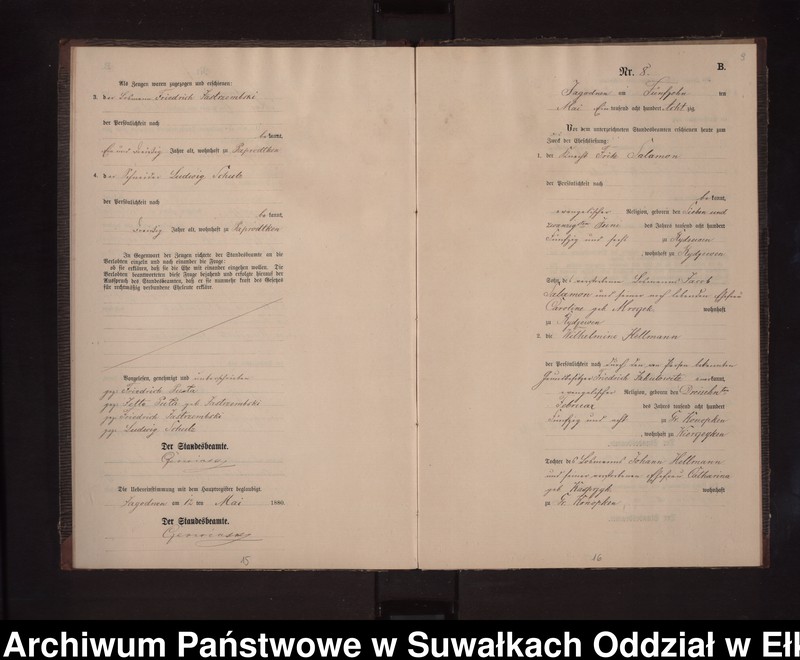 Als Zeugen waren zugezogen und erschienen:
3. der Losmann Friedrich Jastrzembski
der Persönlichkeit nach
be kannt,
Ein und dreißig Jahre alt, wohnhaft zu
4. der Schneider Ludwig Schulz
der Persönlichkeit nach
be kannt,
dreißig Jahre alt, wohnhaft zu
In Gegenwart der Zeugen richtete der Standesbeamte an die
Verlobten einzeln und nach einander die Frage:
ob sie erklären, daß sie die Ehe mit einander eingehen wollen. Die
Verlobten beantworteten diese Frage bejahend und erfolgte hierauf der
Ausspruch des Standesbeamten, daß er sie nunmehr kraft des Gesetzes
für rechtmäßig verbundene Eheleute erkläre.
Vorgelesen, genehmigt und unterschrieben
gez. Friedrich
gez. geb Jastrzembski
gez. Friedrich Jastrzembski
gez. Ludwig Schulz
Der Standesbeamte.
Die Uebereinstimmung mit dem Hauptregister beglaubigt.
Jagodnen am 12 ten Mai 1880.
Der Standesbeamte.
15
9
B.
Nr. 8.
Jagodnen am Fünfzehn ten
Mai Ein tausend acht hundert acht zig
Vor dem unterzeichneten Standesbeamten erschienen heute zum
Zweck der Eheschließung:
1. der Knecht Fritz Salamon
der Persönlichkeit nach
be kannt,
evangelischer Religion, geboren den Sieben und
zwanzigsten Juni des Jahres tausend acht hundert
Fünfzig und sechs zu Rydzewen
, wohnhaft zu Rydzewen
Sohn des verstorbenen Losmanns Jacob
Salamon und seiner noch lebenden Ehefrau
Caroline geb. Mrozek wohnhaft
zu Rydzewen
2. die Wilhelmine Hellmann
der Persönlichkeit nach durch den von Person bekannten
Grundbesitzer Friedrich Jakubowitz anerkannt,
evangelischer Religion, geboren den Dreizehnten
Februar des Jahres tausend acht hundert
Fünfzig und acht zu Gr. Konopken
, wohnhaft zu
Tochter des Losmanns Johann Hellmann
und seiner verstorbenen Ehefrau Catharina
geb. Kasprzyk wohnhaft
zu Gr. Konopken
16
Archiwum Państwowe w Suwałkach Oddział w Ełk